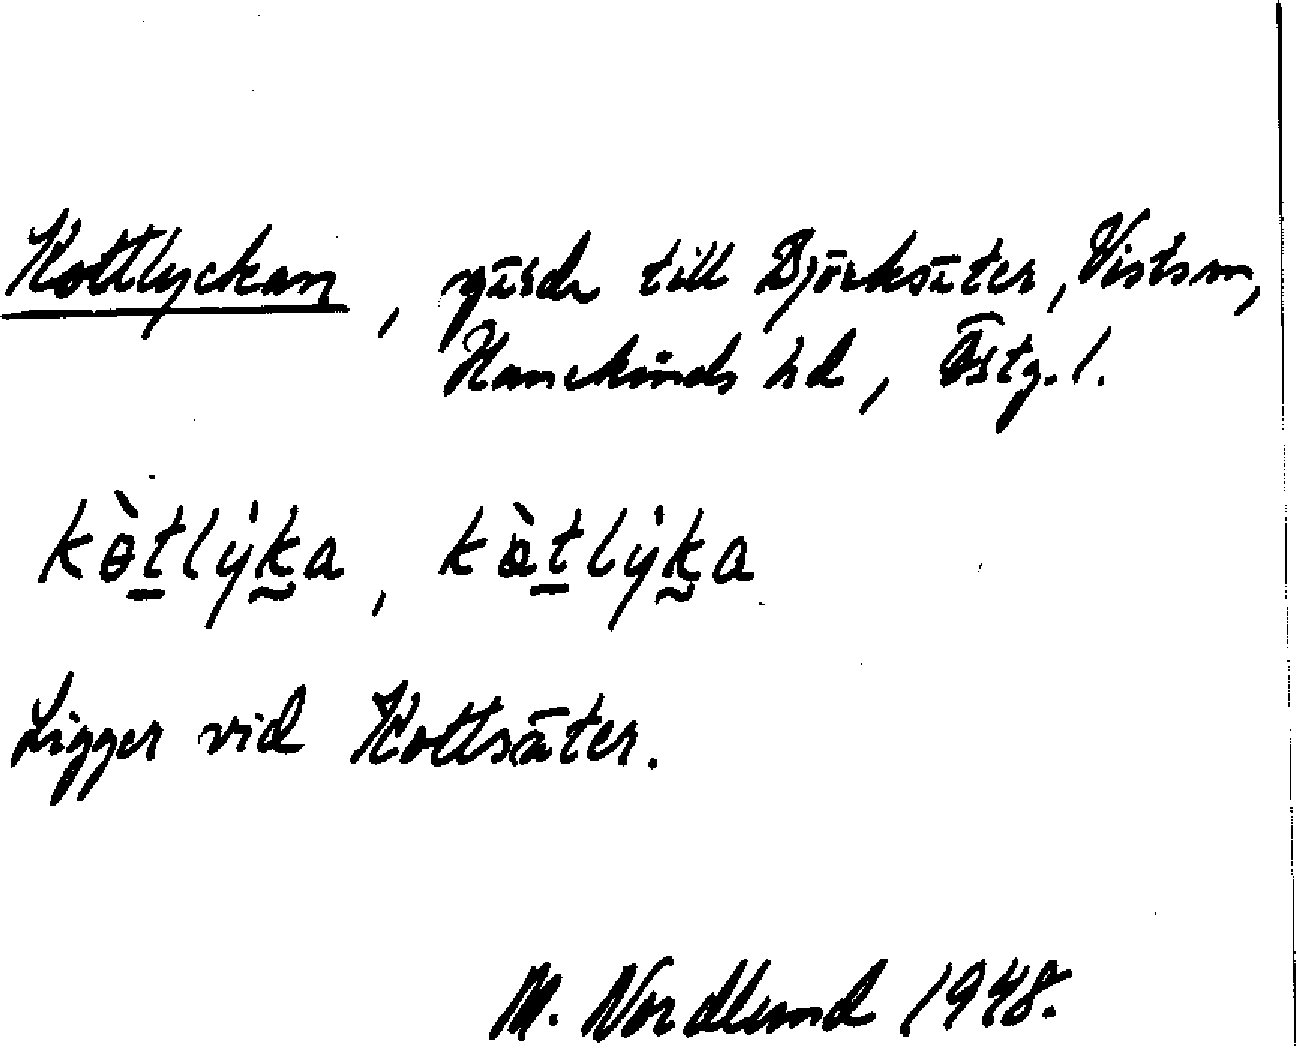 Kottlyckan, gärde till Björksäter, Vists sn,
Hanekinds hd, Östg. l.
kòt̠lýk̰a, kàt̠lýk̰a
Ligger vid Kottsäter.
M. Nordlund 1948.